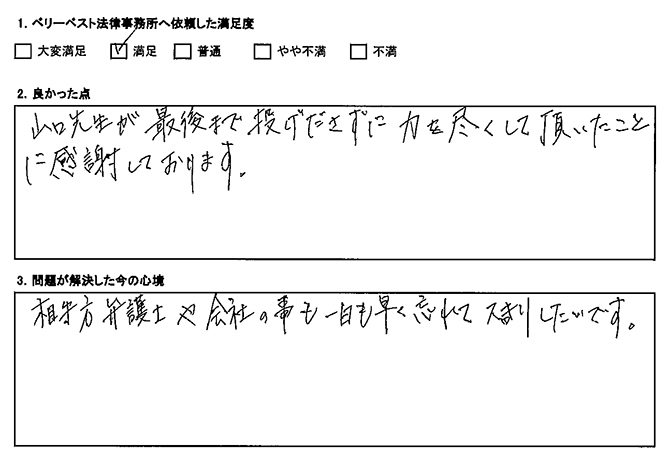 1. ベリーベスト法律事務所へ依頼した満足度
□ 大変満足 ☑ 満足 □ 普通 □ やや不満 □ 不満
2. 良かった点
山口先生が最後まで投げださずに力を尽くして頂いたこと
に感謝しております。
3. 問題が解決した今の心境
相手方弁護士や会社の事も一日も早く忘れてスッキリしたいです。